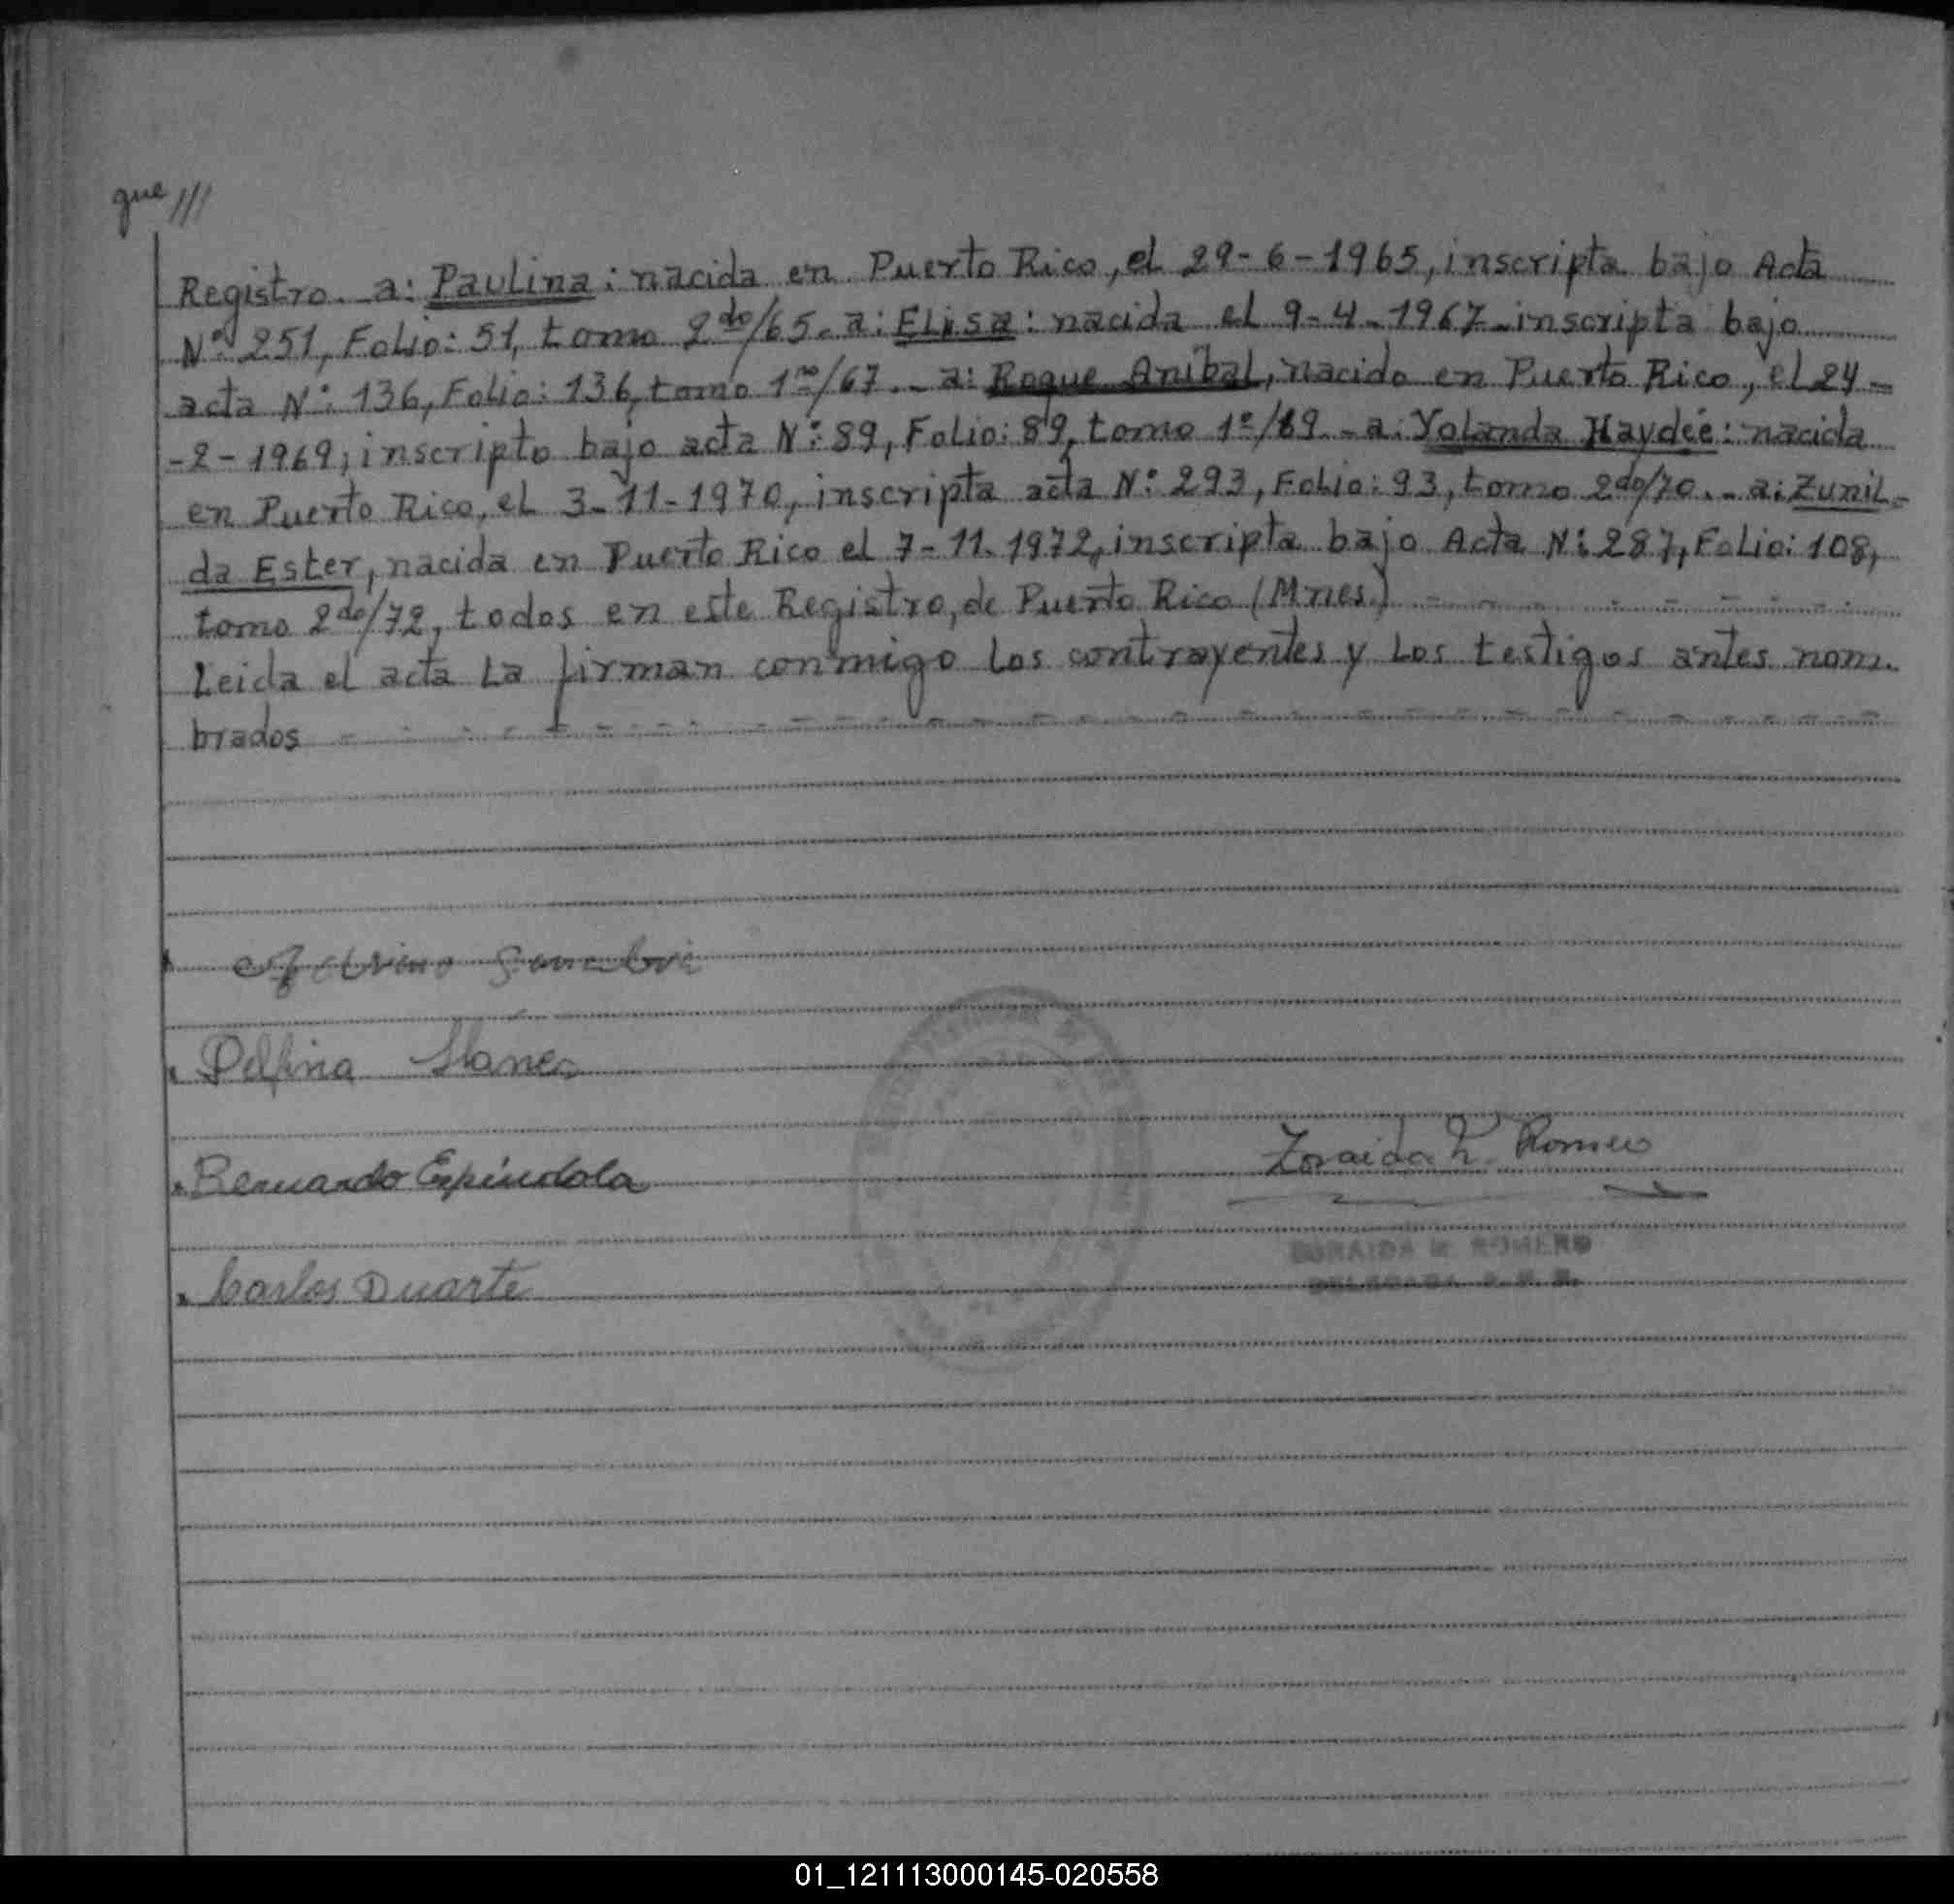 que ///
Registro. a: Paulina: nacida en Puerto Rico, el 29-6-1965, inscripta bajo Acta
Nº 251, Folio: 51, tomo 2do/65. a: Elisa: nacida el 9-4-1967 - inscripta bajo
acta Nº: 136, Folio: 136, tomo 1ro/67. - a: Roque Anibal, nacido en Puerto Rico, el 24-
-2-1969, inscripto bajo acta Nº: 89, Folio: 89, tomo 1º/69. - a: Yolanda Haydée: nacida
en Puerto Rico, el 3-11-1970, inscripta acta Nº: 293, Folio: 93, tomo 2do/70. - a: Zunil-
da Ester, nacida en Puerto Rico el 7-11-1972, inscripta bajo Acta Nº: 287, Folio: 108,
tomo 2do/72, todos en este Registro, de Puerto Rico (Mnes.)
Leida el acta la firman conmigo los contrayentes y los testigos antes nom-
brados
Delfina Llanes
Zoraida Romero
Bernardo Espindola
ZORAIDA M. ROMERO
Carlos Duarte
01_121113000145-020558